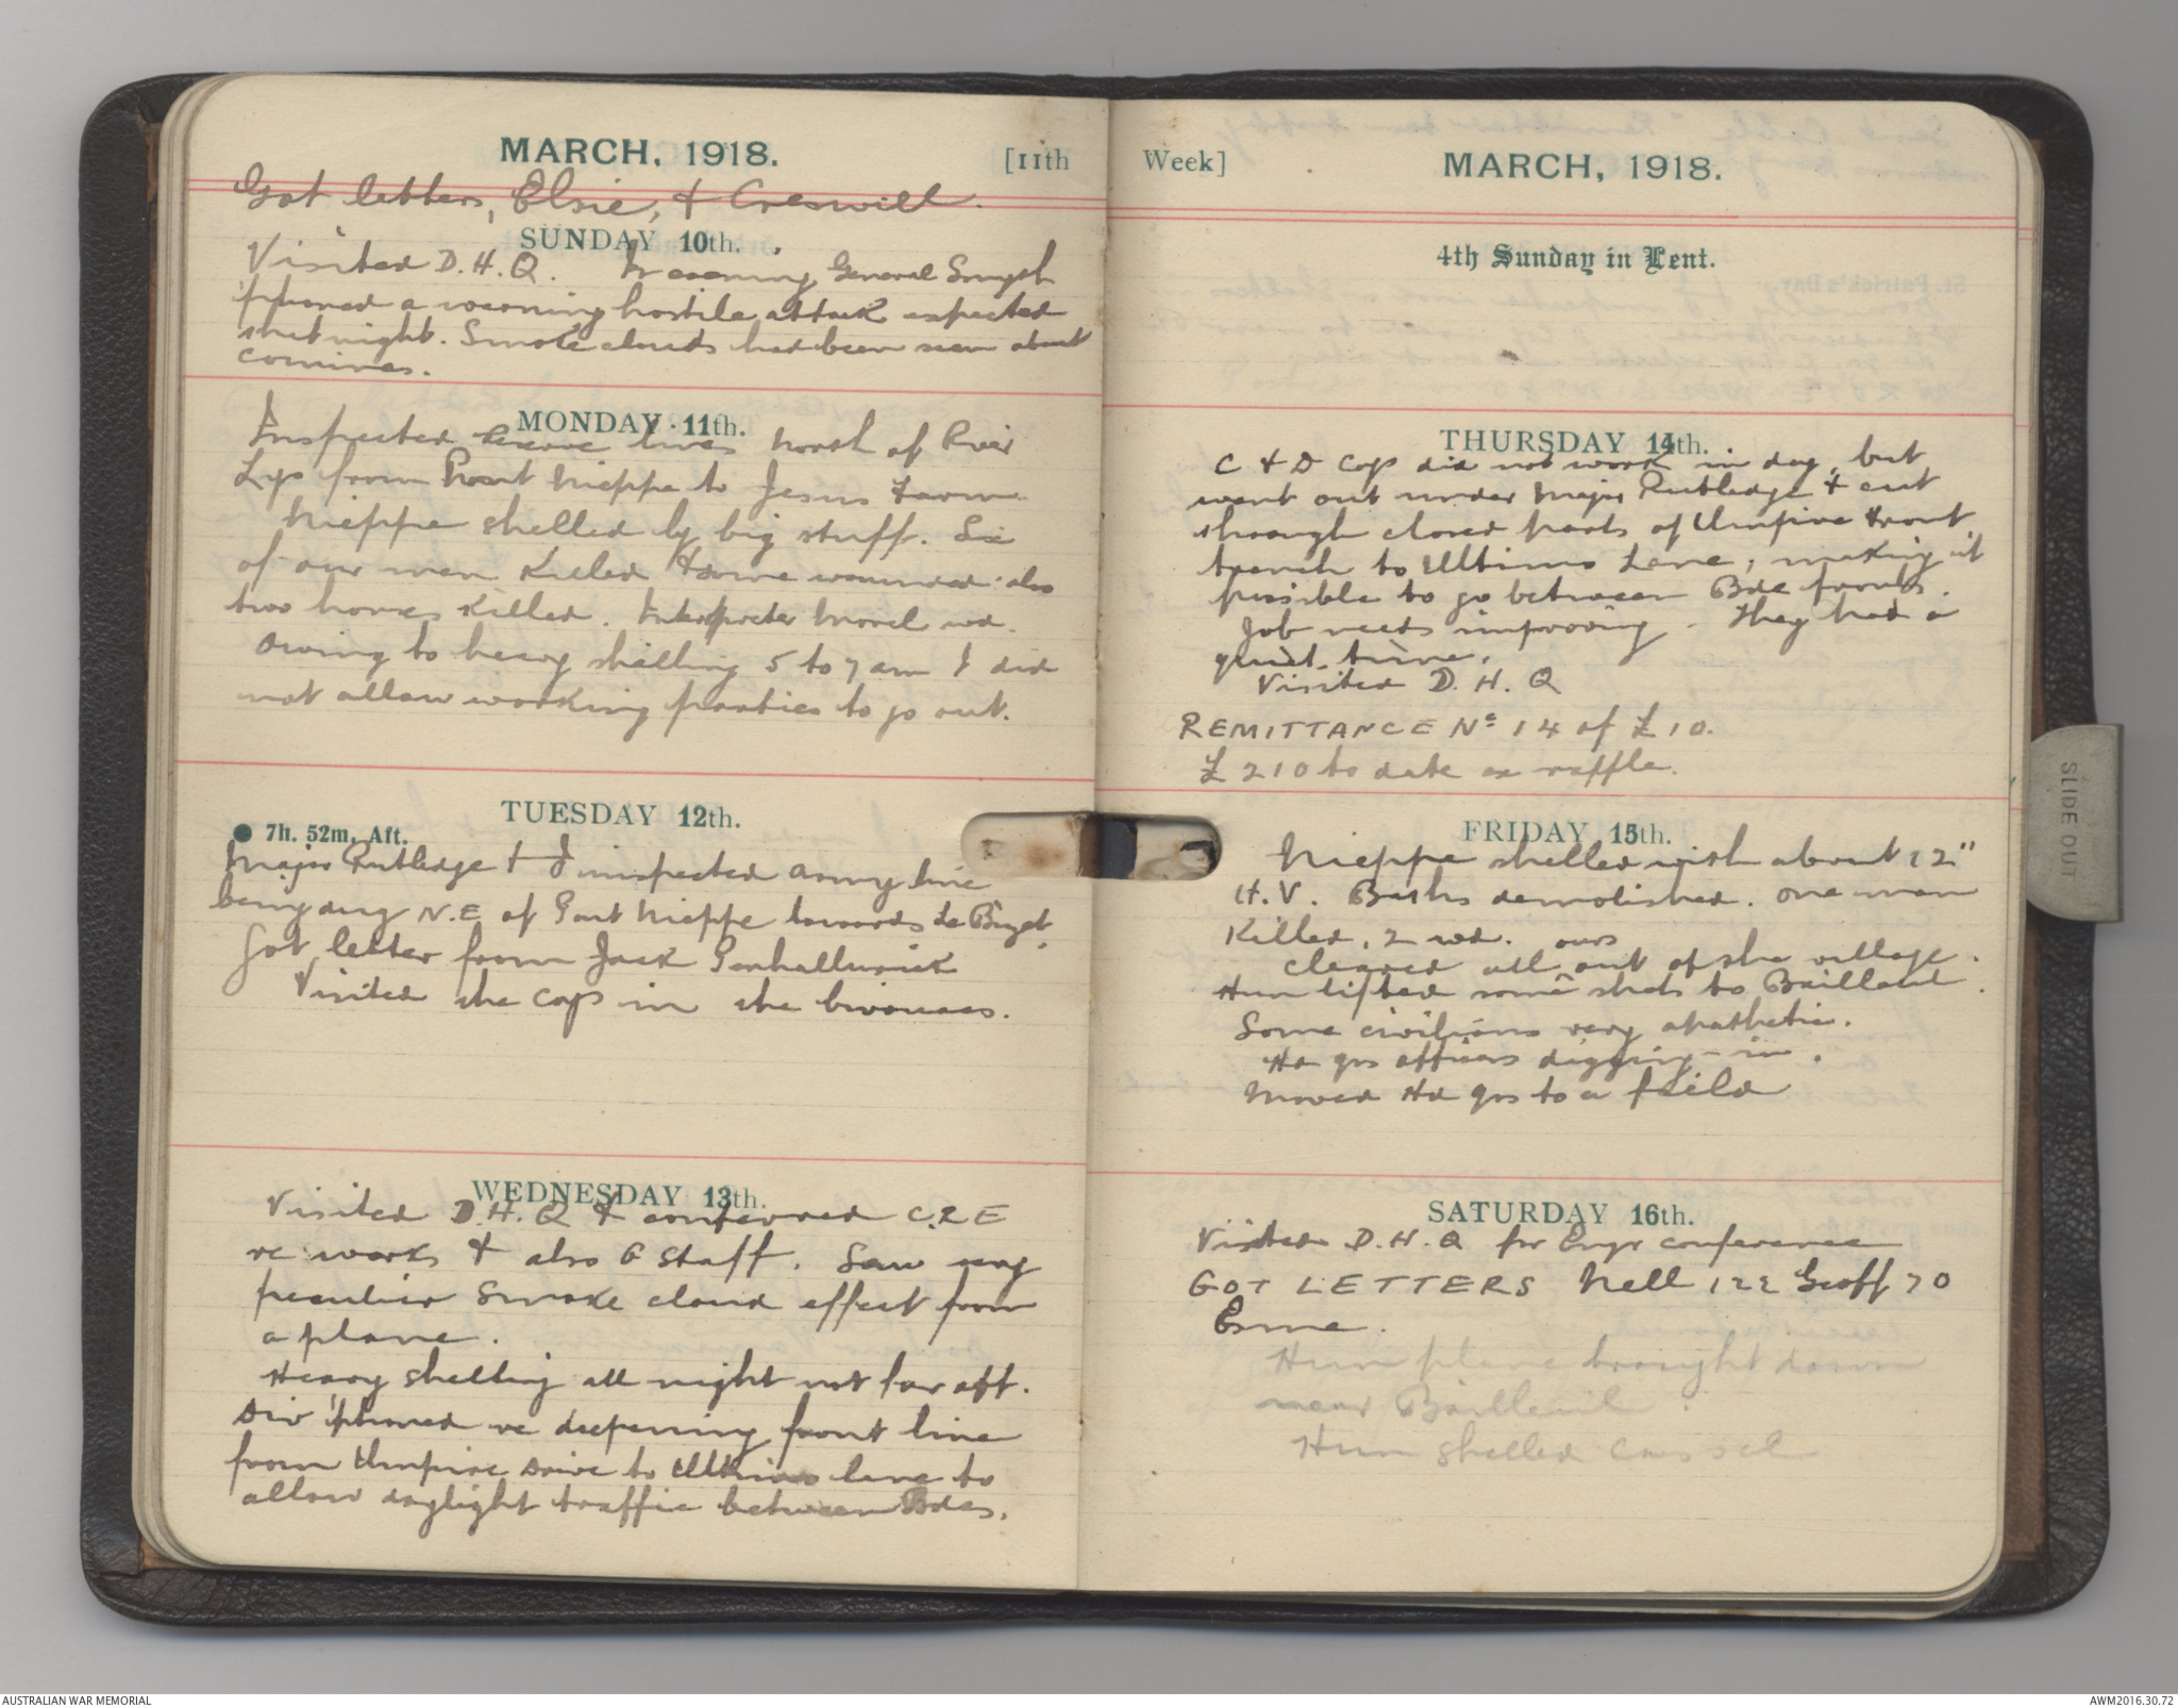 MARCH, 1918. [11th
Got letters, Elsie, & Creswell.
SUNDAY 10th.
Visited D.H.Q. In evening General Smyth
'phoned a warning hostile attack expected
that night. Smoke clouds had been seen about
Comines.
MONDAY 11th.
Inspected Reserve lines north of River
Lys from Pont Nieppe to Jesus Farm
Nieppe shelled by big stuff. Six
of our men killed & some wounded also
two horses killed. Interpreter Morel wd.
Owing to heavy shelling 5 to 7 am I did
not allow working parties to go out.
TUESDAY 12th.
7h. 52m. Aft.
Major Rutledge & I inspected army line
being dug N.E of Pont Nieppe towards Le Bizet.
Got letter from Jack Penhalluriack
Visited the Coys in the bivouacs.
WEDNESDAY 13th.
Visited D.H.Q & conferred C.R.E
re works & also G Staff. Saw very
peculiar smoke cloud effect from
a plane.
Heavy shelling all night not far off.
Div 'phoned re deepening front line
from Umpire Drive to Ultimo lane to
allow daylight traffic between Bdes.
Week] MARCH, 1918.
4th Sunday in Lent.
THURSDAY 14th.
C & D Coys did not work in day, but
went out under Major Rutledge & cut
through closed parts of Umpire front
trench to Ultimo Lane, making it
possible to go between Bde fronts.
Job needs improving. They had a
quiet time.
Visited D.H.Q
REMITTANCE No 14 of £10.
£210 to date ex raffle.
FRIDAY 15th.
Nieppe shelled with about 12"
H.V. Baths demolished. One man
killed, 2 wd. ours
Cleared all out of the village.
Hun lifted some shots to Bailleul.
Some civilians very apathetic.
Hd qrs officers digging-in.
Moved Hd qrs to a field
SATURDAY 16th.
Visited D.H.Q for Engr conference
GOT LETTERS Nell 122 Geoff 70
Esme.
Hun plane brought down
near Bailleul.
Hun shelled Cassel
SLIDE OUT
AUSTRALIAN WAR MEMORIAL
AWM2016.30.72